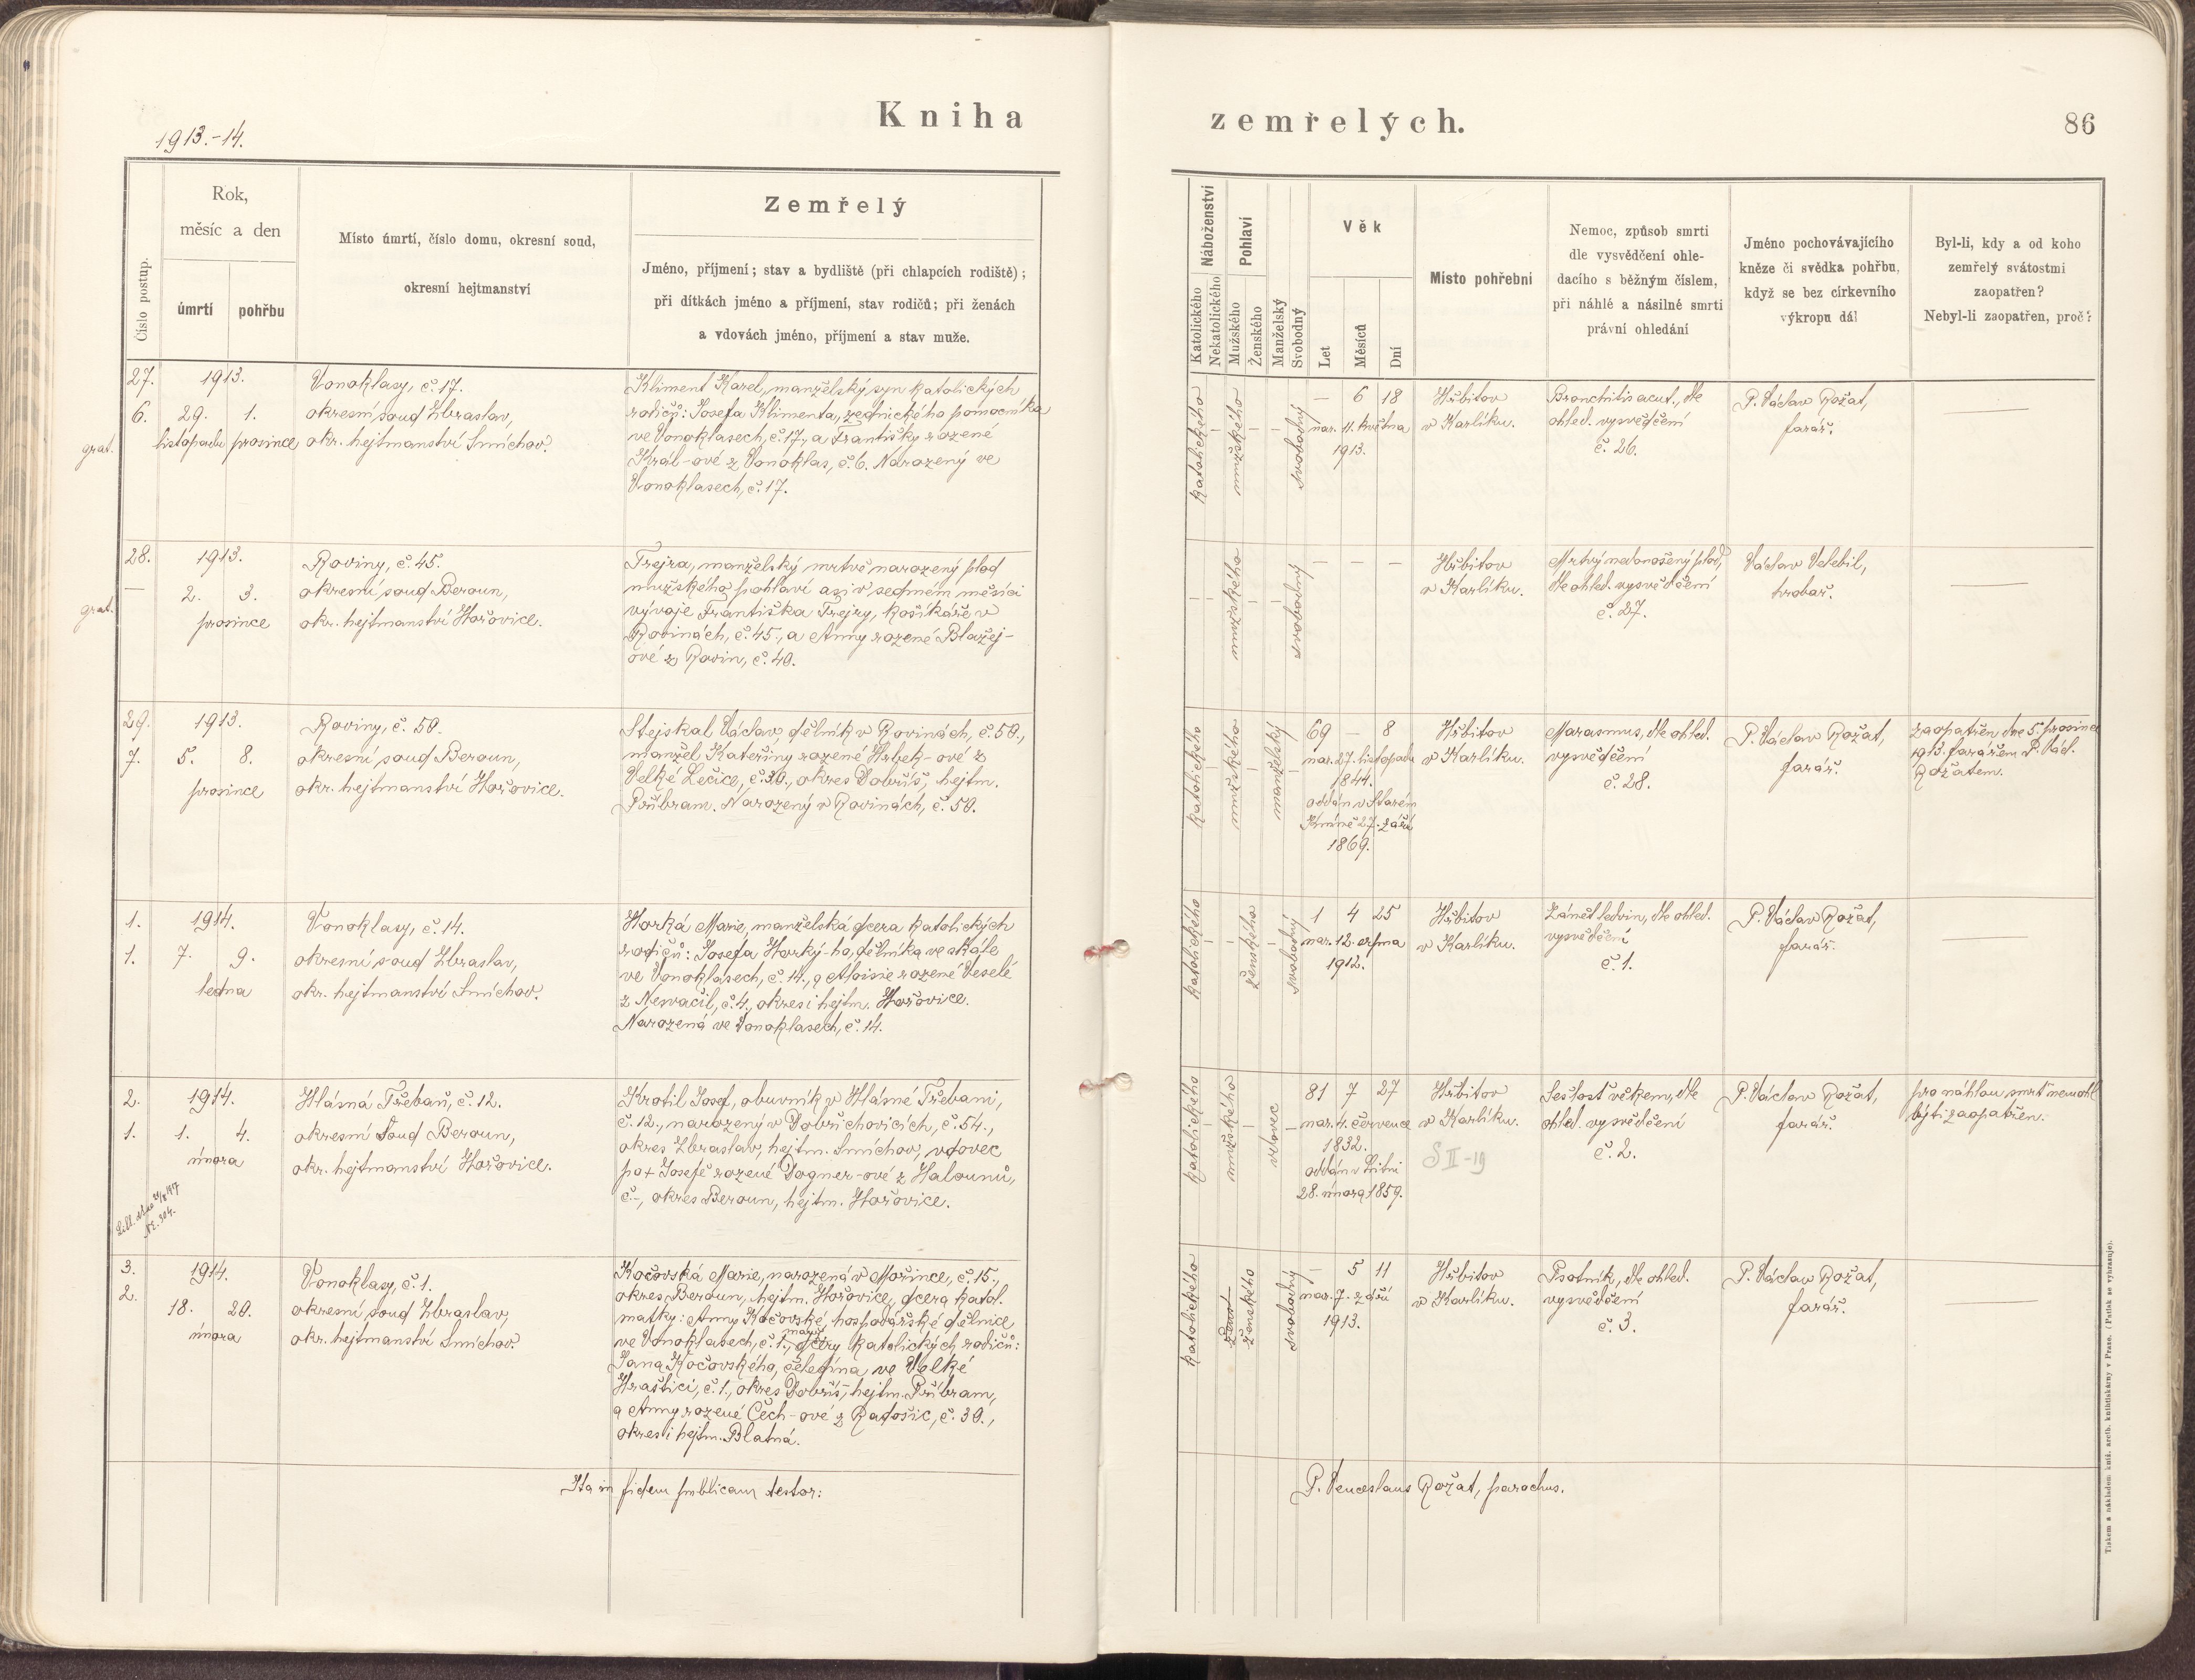 Kniha
zemřelých.
86
1913.-14.
Číslo postup.
Rok,
měsíc a den
úmrtí
pohřbu
Místo úmrtí, číslo domu, okresní soud,
okresní hejtmanství
Zemřelý
Jméno, příjmení; stav a bydliště (při chlapcích rodiště);
při dítkách jméno a příjmení, stav rodičů; při ženách
a vdovách jméno, příjmení a stav muže.
Náboženství
Katolického
Nekatolického
Pohlaví
Mužského
Ženského
Manželský
Svobodný
Věk
Let
Měsíců
Dní
Místo pohřební
Nemoc, způsob smrti
dle vysvědčení ohle-
dacího s běžným číslem,
při náhlé a násilné smrti
právní ohledání
Jméno pochovávajícího
kněze či svědka pohřbu,
když se bez církevního
výkropu dál
Byl-li, kdy a od koho
zemřelý svátostmi
zaopatřen?
Nebyl-li zaopatřen, proč?
27.
6.
grat.
1913.
29. 1.
listopadu prosince
Vonoklasy, č. 17.
okresní soud Zbraslav,
okr. hejtmanství Smíchov.
Kliment Karel, manželský syn katolických
rodičů: Josefa Klimenta, zednického pomocníka
ve Vonoklasech, č. 17., a Františky rozené
Král-ové z Vonoklas, č. 6. Narozený ve
Vonoklasech, č. 17.
katolického
-
mužského
-
-
svobodný
— 6 18
nar. 11. května
1913.
Hřbitov
v Karlíku.
Bronchitis acut., dle
ohled. vysvědčení
č. 26.
P. Václav Rožat,
farář.
—
28.
—
grat.
1913.
2. 3.
prosince
Roviny, č. 45.
okresní soud Beroun,
okr. hejtmanství Hořovice.
Trejra, manželský mrtvě narozený plod
mužského pohlaví asi v sedmém měsíci
vývoje Františka Trejry, košíkáře v
Rovinách, č. 45., a Anny rozené Blažej-
ové z Rovin, č. 40.
-
-
mužského
-
-
svobodný
— — —
Hřbitov
v Karlíku.
Mrtvý nedonošený plod,
dle ohled. vysvědčení
č. 27.
Václav Velebil,
hrobař.
—
29.
7.
1913.
5. 8.
prosince
Roviny, č. 50.
okresní soud Beroun,
okr. hejtmanství Hořovice.
Stejskal Václav, dělník v Rovinách, č. 50.,
manžel Kateřiny rozené Hrbek-ové z
Velké Lečice, č. 30., okres Dobříš, hejtm.
Příbram. Narozený v Rovinách, č. 50.
katolického
-
mužského
-
manželský
-
69 — 8
nar. 27. listopadu
1844.
oddán v Starém
Kníně 27. září
1869.
Hřbitov
v Karlíku.
Marasmus, dle ohled.
vysvědčení
č. 28.
P. Václav Rožat,
farář.
zaopatřen dne 5. prosince
1913. farářem P. Václ.
Rožatem.
1.
1.
1914.
7. 9.
ledna
Vonoklasy, č. 14.
okresní soud Zbraslav,
okr. hejtmanství Smíchov.
Horká Marie, manželská dcera katolických
rodičů: Josefa Horký-ho, dělníka ve skále
ve Vonoklasech, č. 14., a Aloisie rozené Veselé
z Nesvačil, č. 4., okres i hejtm. Hořovice.
Narozená ve Vonoklasech, č. 14.
katolického
-
-
ženského
-
svobodný
1 4 25
nar. 12. srpna
1912.
Hřbitov
v Karlíku.
Zánět ledvin, dle ohled.
vysvědčení
č. 1.
P. Václav Rožat,
farář.
—
2.
1.
1914.
1. 4.
února
Hlásná Třebaň, č. 12.
okresní soud Beroun,
okr. hejtmanství Hořovice.
Krotil Josef, obuvník v Hlásné Třebani,
č. 12., narozený v Dobřichovicích, č. 54.,
okres Zbraslav, hejtm. Smíchov, vdovec
po + Josefě rozené Dogner-ové z Halounů,
č. -, okres Beroun, hejtm. Hořovice.
katolického
-
mužského
-
vdovec
-
81 7 27
nar. 4. července
1832.
oddán v
28. února 1859.
Hřbitov
v Karlíku.
S II-19
Sešlost věkem, dle
ohled. vysvědčení
č. 2.
P. Václav Rožat,
farář.
pro náhlou smrt nemohl
býti zaopatřen.
№. 304.
3.
2.
1914.
18. 20.
února
Vonoklasy, č. 1.
okresní soud Zbraslav,
okr. hejtmanství Smíchov.
Kočovská Marie, narozená v Mořince, č. 15.,
okres Beroun, hejtm. Hořovice, dcera katol.
matky: Anny Kočovské, hospodářské dělnice
ve Vonoklasech, č. 1., manž. dcery katolických rodičů:
Jana Kočovského, čeledína ve Velké
Hraštici, č. 1., okres Dobříš, hejtm. Příbram,
a Anny rozené Čech-ové z Radošic, č. 30.,
okres i hejtm. Blatná.
katolického
ženského
svobodný
— 5 11
nar. 7. září
1913.
Hřbitov
v Karlíku.
Psotník, dle ohled.
vysvědčení
č. 3.
P. Václav Rožat,
farář.
—
Ita in fidem publicam testor:
P. Venceslaus Rožat, parochus.
Tiskem a nákladem kníž. arcib. knihtiskárny v Praze. (Patisk se vyhrazuje).